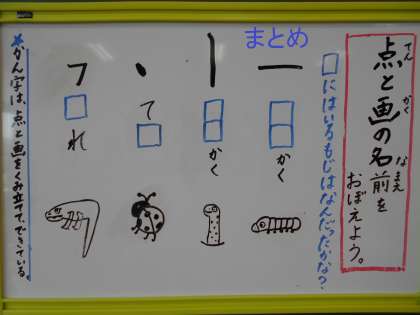 点と画の名前を
てん かく なまえ
おぼえよう。
□にはいるもじはなんだったかな?
まとめ
一
□□かく
丨
□□かく
丶
て□
㇇
□れ
★かん字は、点と画をくみ立てて、できている。